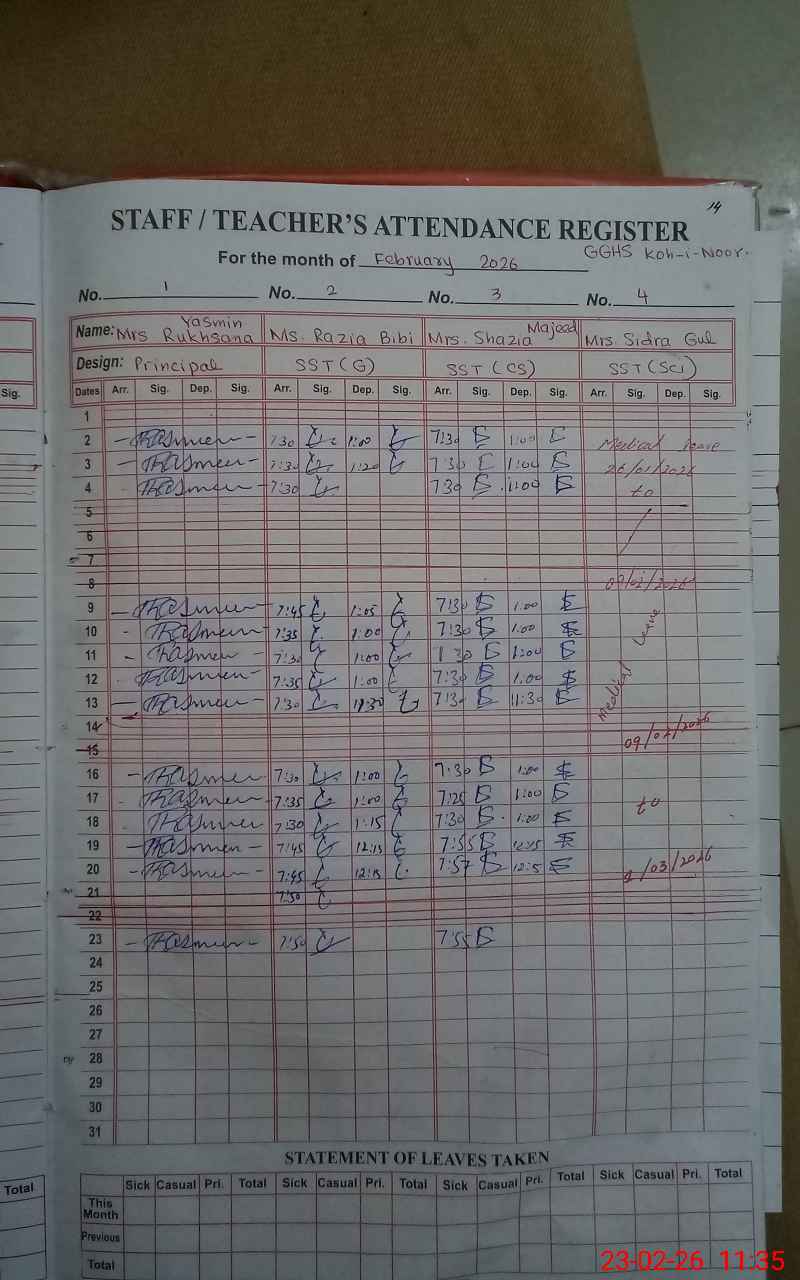 14
STAFF / TEACHER'S ATTENDANCE REGISTER
GGHS Koh-i-Noor.
For the month of February 2026
No. 1 No. 2 No. 3 No. 4
Name: Mrs Yasmin Rukhsana Ms. Razia Bibi Mrs. Shazia Majeed Mrs. Sidra Gul
Design: Principal SST (G) SST (CS) SST (Sci)
Sig. Dates Arr. Sig. Dep. Sig. Arr. Sig. Dep. Sig. Arr. Sig. Dep. Sig. Arr. Sig. Dep. Sig.
1
2 7:30 1:00 7:30 1:00 Medical leave
3 7:30 1:20 7:30 1:00 26/01/2026
4 7:30 7:30 1:00 to
5
6
7
8 /02/2026
9 7:45 1:05 7:30 1:00
10 7:35 1:00 7:30 1:00
11 7:30 1:00 30 1:00
12 7:35 1:00 7:30 1:00
13 7:30 11:30 7:30 11:30
Medical Leave
14
15 09/02/2026
16 7:30 1:00 7:30 1:00
17 7:35 1:00 7:25 1:00 to
18 7:30 1:15 7:30 1:00
19 7:45 12:15 7:55 12:15
20 7:45 12:15 7:57 /03/2026
21 7:50
22
23 7:50 7:55
24
25
26
27
28
29
30
31
STATEMENT OF LEAVES TAKEN
Total Sick Casual Pri. Total Sick Casual Pri. Total Sick Casual Pri. Total Sick Casual Pri. Total
This Month
Previous
Total
23-02-26 11:35